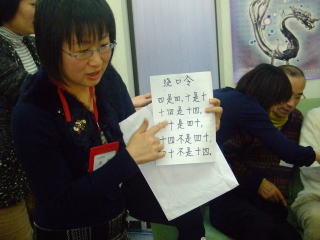 绕口令
四是四,十是十
十四是十四,
十是四十,
十四不是四十,
十不是十四,